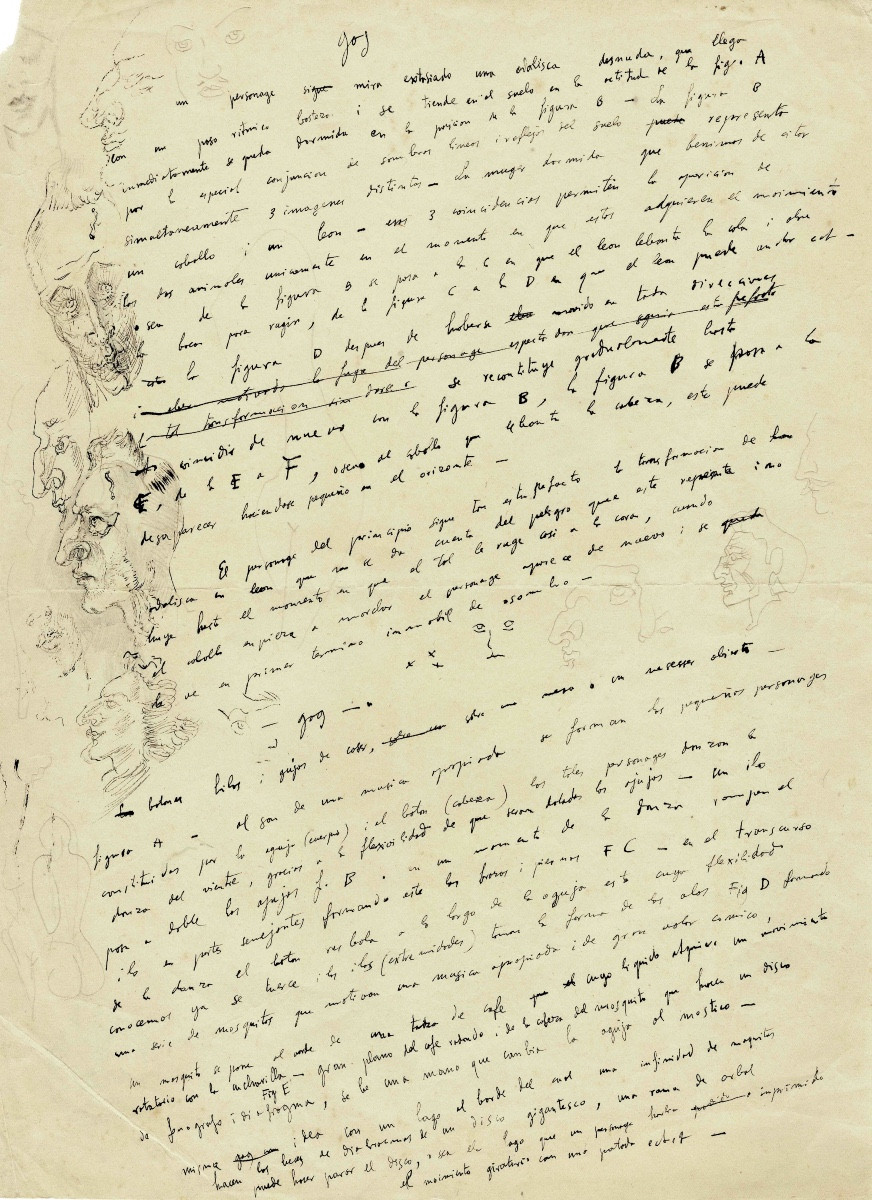 gog
un personage mira extasiado una odalisca desnuda, que llega
con un paso ritmico bosteza i se tiende en el suelo en la actitud de la fig. A
inmediatamente se queda dormida en la posicion de la figura B – La figura B
por la especial conjuncion de sombras lineas i reflejos del suelo puede representa
simultaneamente 3 imagenes distintas – La muger dormida que benimos de citar
un caballo i un leon – esas 3 coincidencias permiten la aparicion de
los dos animales unicamente en el momento en que estos adquieren el movimiento
osea de la figura B se pasa a la C en que el leon lebanta la cola i abre
la boca para ragir, de la figura C a la D en que el leon puede andar ect –
la figura D despues de haberse movido en todas direcciones
se recontituye gradualmente hasta
coincidir de nuevo con la figura B, la figura B se pasa a la
E, de la E a F, osea al caballo que lebanta la cabeza, este puede
desaparecer haciendose pequeño en el orizonte –
El personage del principio sigue tan estupefacto la transformacion de la
odalisca en leon que no se da cuenta del peligro que este representa i no
huye hasta el momento en que el tal le rage casi a la cara, cuando
el caballo empieza a marchar el personage aparece de nuevo i se queda
le ve en primer termino immobil de asombro –
– gog –
botones hilos i agujas de coser, sobre una mesa o un necesser abierto –
figura A – al son de una musica apropiada se forman los pequeños personages
constituidos por la aguja (cuerpo) i el boton (cabeza) los tales personages danzan la
danza del vientre, gracias a la flexivilidad de que seran dotadas las agujas – un ilo
pasa a doble las agujas f. B. en un momento de la danza rompen el
ilo en partes semejantes formando este los brazos i piernas F C – en el transcurso
de la danza el boton resbala a lo largo de la aguja esta cuya flexilidad
conocemos ya se tuerce i los ilos (extremidades) toman la forma de las alas Fig D formando
una serie de mosquitos que motivan una musica apropiada i de gran valor comico,
un mosquito se pone al borde de una taza de cafe cuyo liquido adquiere un movimiento
rotatorio con la cucharilla – gran plano del cafe rodando i de la cabeza del mosquito que hacen un disco
Fig E
de fonografo i diafragma, se be una mano que cambia la aguja al mostico –
misma idea con un lago al borde del cual una infinidad de mosquitos
hacen las beces de diafracmas de un disco gigantesco, una rama de arbol
puede hacer parar el disco, o sea el lago que un personage habra imprimido
el movimiento giratorio con una patada ect ect –